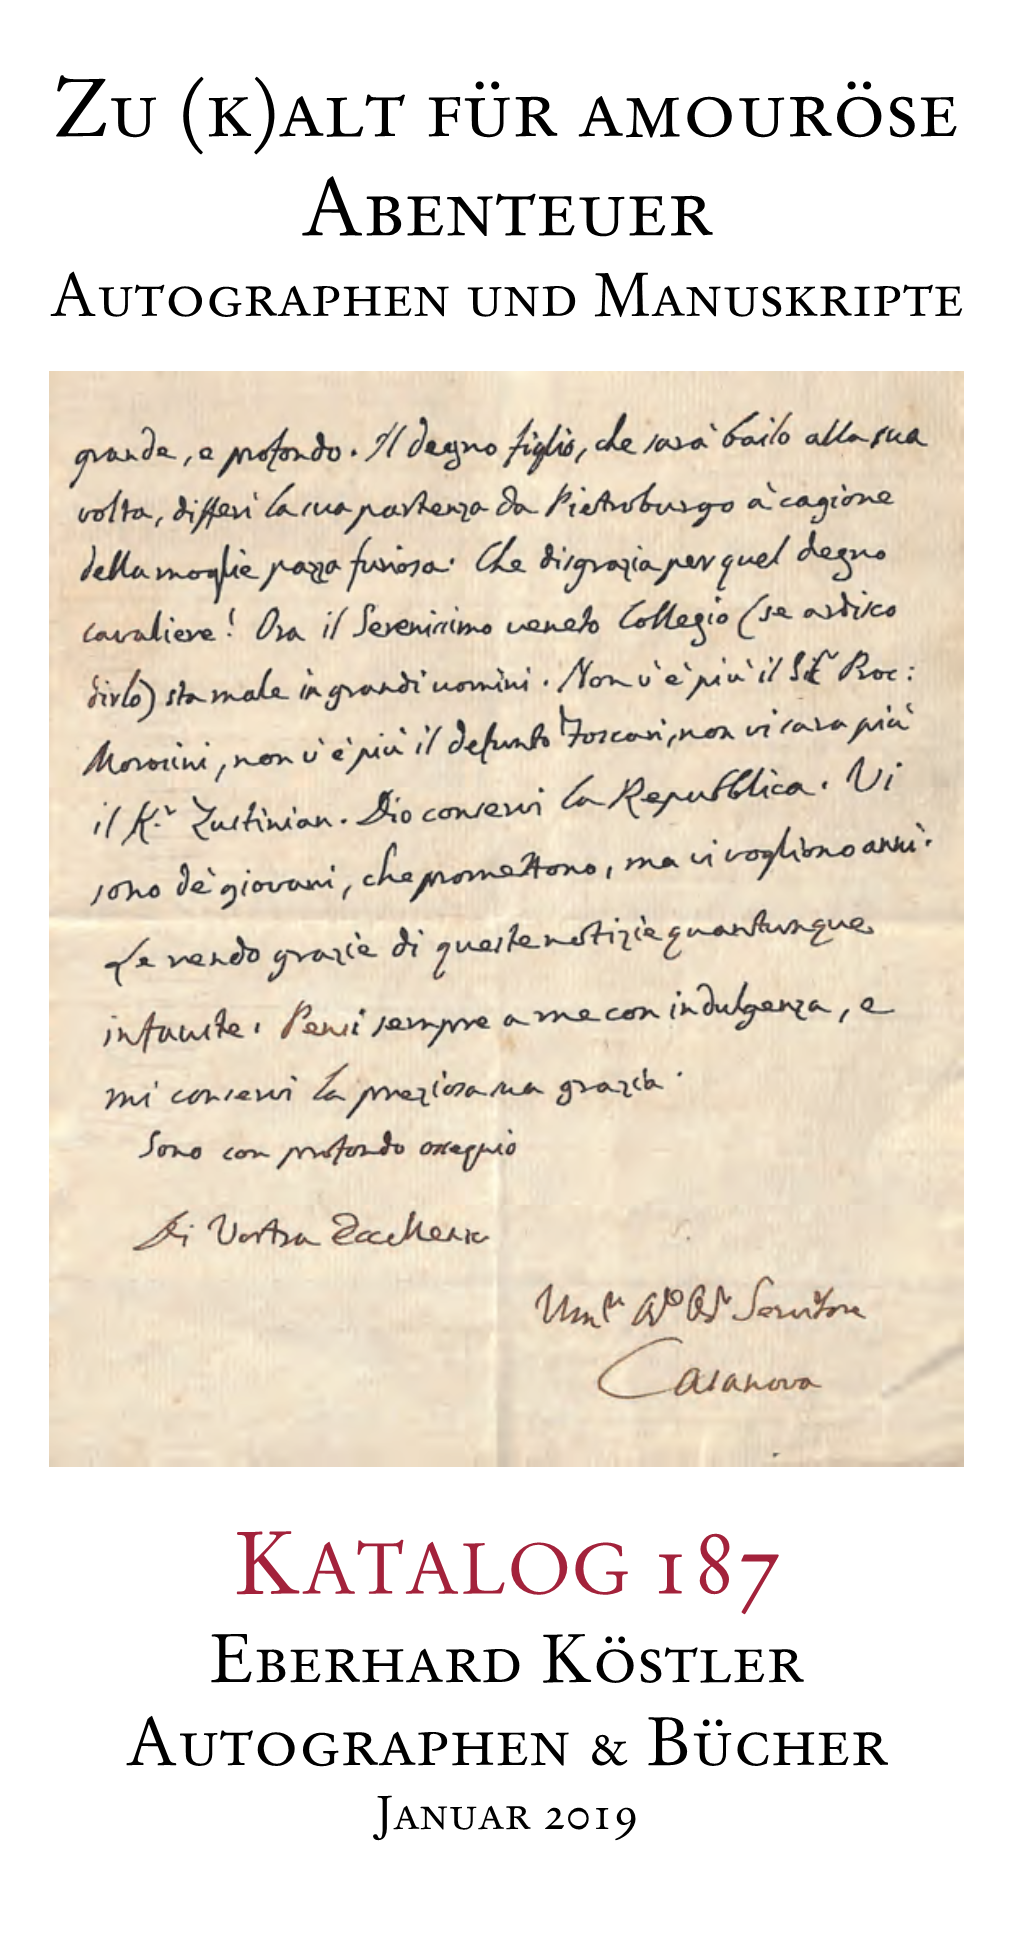 Zu (k)alt für amouröse
Abenteuer
Autographen und Manuskripte
grande, e profondo. Il degno figlio, che sarà bailo alla sua
volta, differì la sua partenza da Pietroburgo à cagione
della moglie pazza furiosa. Che disgrazia per quel degno
cavaliere! Ora il Serenissimo veneto Collegio (se ardisco
dirlo) sta male in grandi uomini. Non v'è più il Proc:
Morosini, non v'è più il defunto Foscari, non vi sara più
il K.r Zustinian. Dio conservi la Repubblica. Vi
sono de' giovani, che promettono, ma vi vogliono anni.
Le rendo grazie di queste notizie quantunque
infauste. Pensi sempre a me con indulgenza, e
mi conservi la preziosa sua grazia.
Sono con profondo ossequio
Di Vostra Eccellenza
Servitore
Casanova
Katalog 187
Eberhard Köstler
Autographen & Bücher
Januar 2019